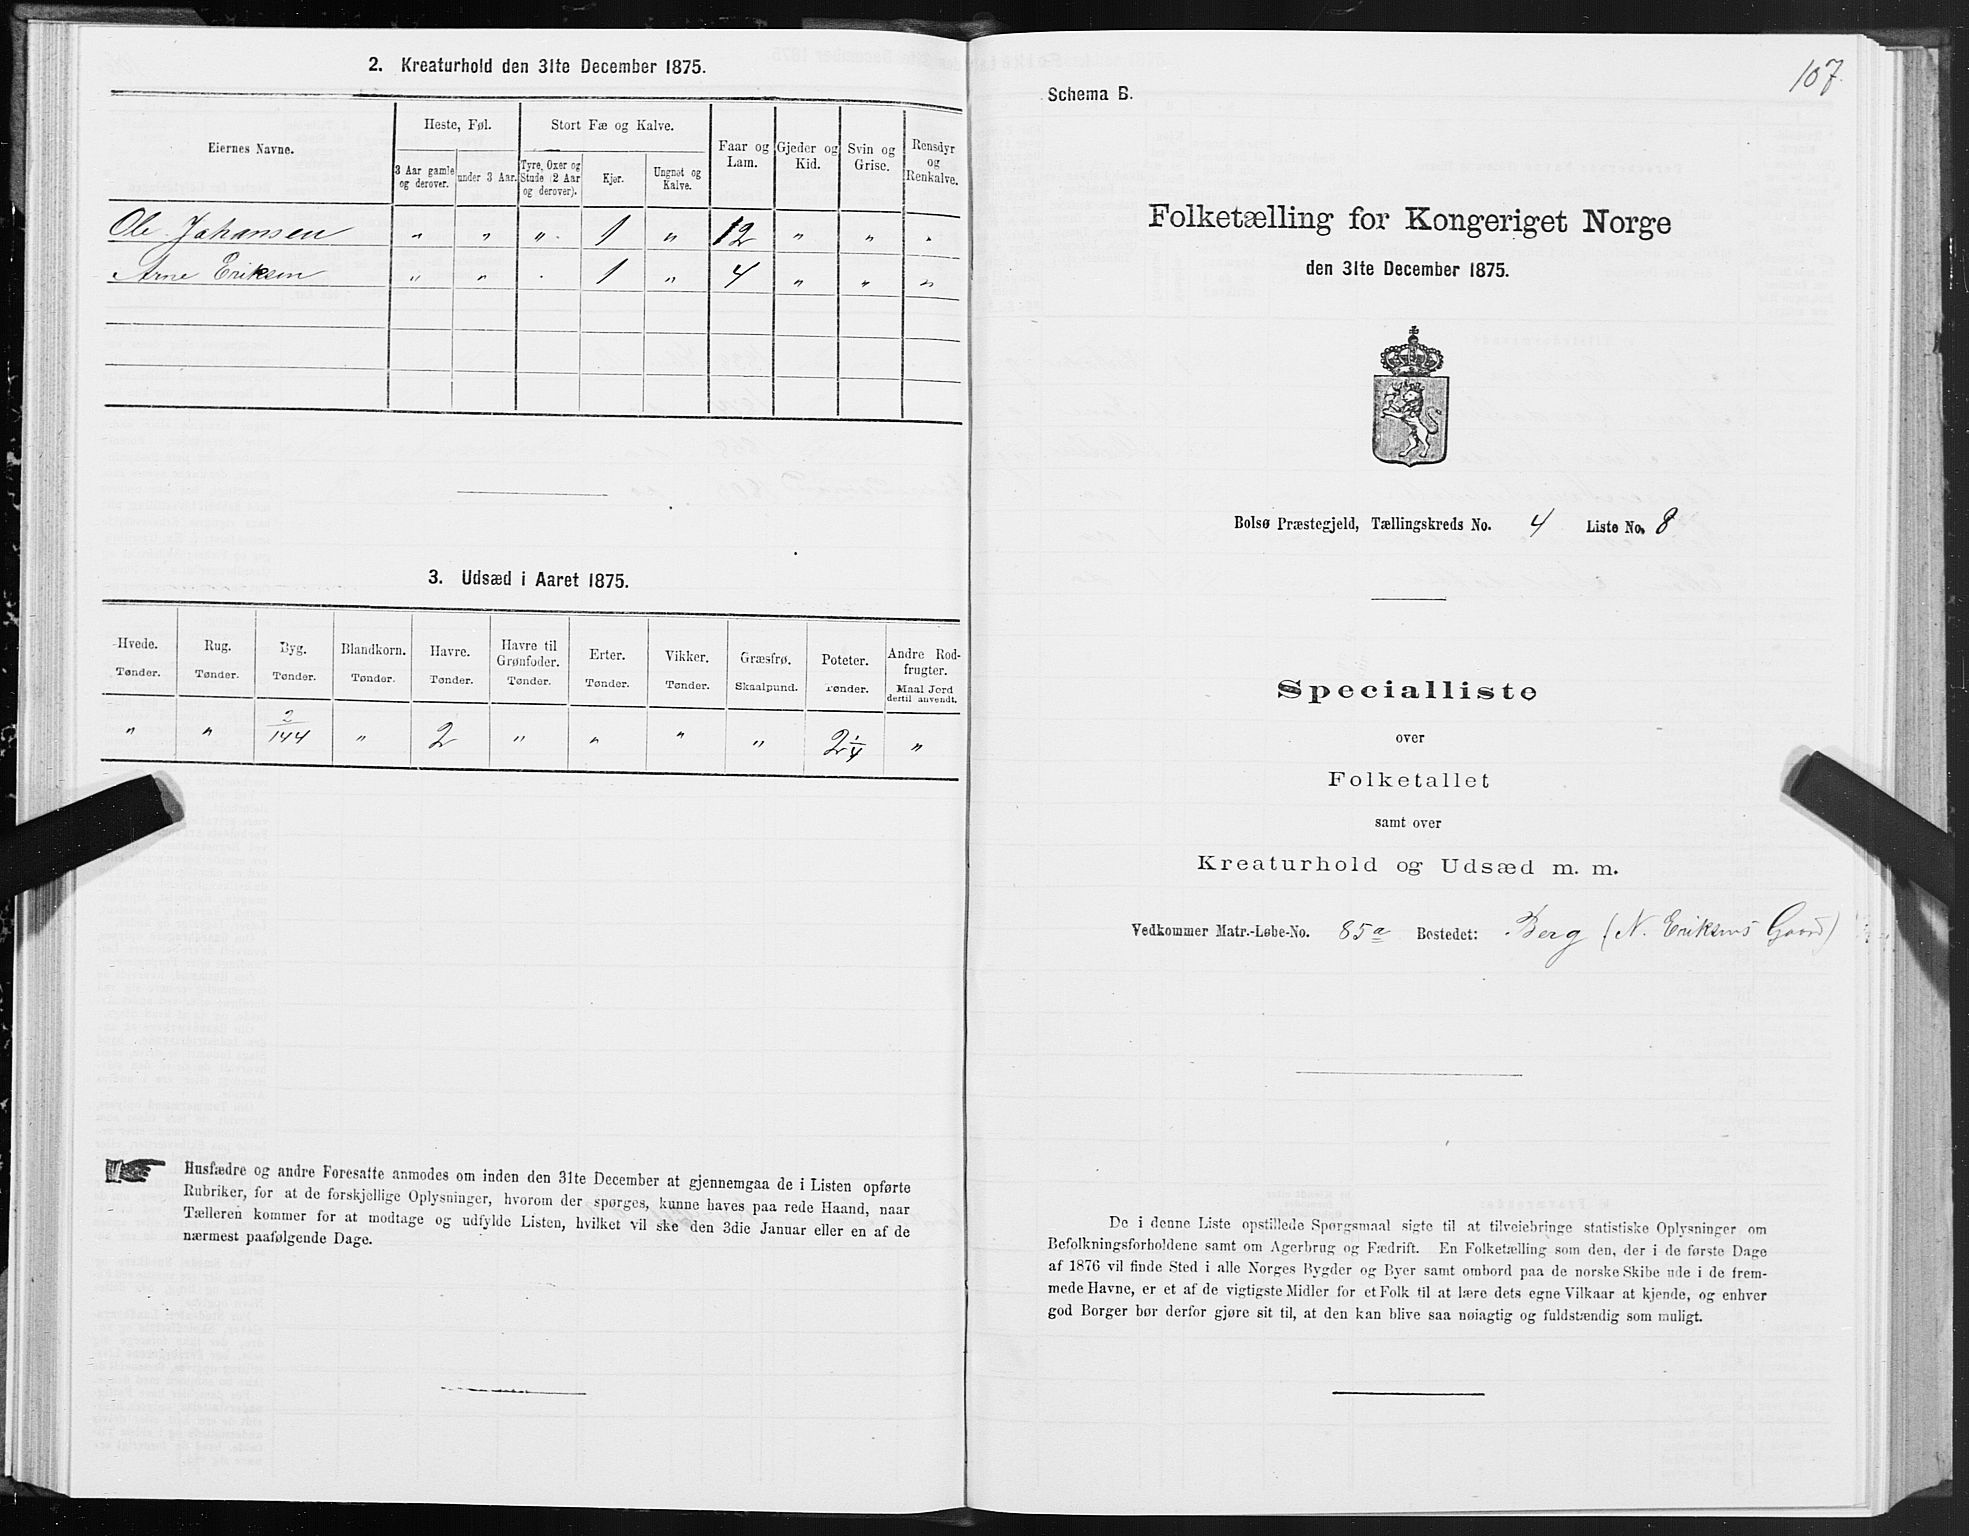 2. Kreaturhold den 31te December 1875.
Eiernes Navne.
Heste, Føl.
Stort Fæ og Kalve.
Faar og Lam.
Gjeder og Kid.
Svin og Grise.
Rensdyr og Renkalve.
3 Aar gamle og derover.
under 3 Aar.
Tyre, Oxer og Stude (2 Aar og derover).
Kjør.
Ungnøt og Kalve.
Ole Johansen " " " 1 " 12 " " "
Arne Eriksen " " . 1 " 4 " " "
3. Udsæd i Aaret 1875.
Hvede. Rug. Byg. Blandkorn. Havre. Havre til Grønfoder. Erter. Vikker. Græsfrø. Poteter. Andre Rodfrugter.
Tønder. Tønder. Tønder. Tønder. Tønder. Tønder. Tønder. Tønder. Skaalpund. Tønder. Maal Jord dertil anvendt.
" " 2/144 " 2 " " " " 2 1/4 "
Husfædre og andre Foresatte anmodes om inden den 31te December at gjennemgaa de i Listen opførte
Rubriker, for at de forskjellige Oplysninger, hvorom der spørges, kunne haves paa rede Haand, naar
Tælleren kommer for at modtage og udfylde Listen, hvilket vil ske den 3die Januar eller en af de
nærmest paafølgende Dage.
107.
Schema B.
Folketælling for Kongeriget Norge
den 31te December 1875.
Bolsø Præstegjeld, Tællingskreds No. 4 Liste No. 8
Specialliste
over
Folketallet
samt over
Kreaturhold og Udsæd m. m.
Vedkommer Matr.-Løbe-No. 85a Bostedet: Berg (N. Eriksens Gaard)
De i denne Liste opstillede Spørgsmaal sigte til at tilveiebringe statistiske Oplysninger om
Befolkningsforholdene samt om Agerbrug og Fædrift. En Folketælling som den, der i de første Dage
af 1876 vil finde Sted i alle Norges Bygder og Byer samt ombord paa de norske Skibe ude i de frem-
mede Havne, er et af de vigtigste Midler for et Folk til at lære dets egne Vilkaar at kjende, og enhver
god Borger bør derfor gjøre sit til, at den kan blive saa nøiagtig og fuldstændig som muligt.